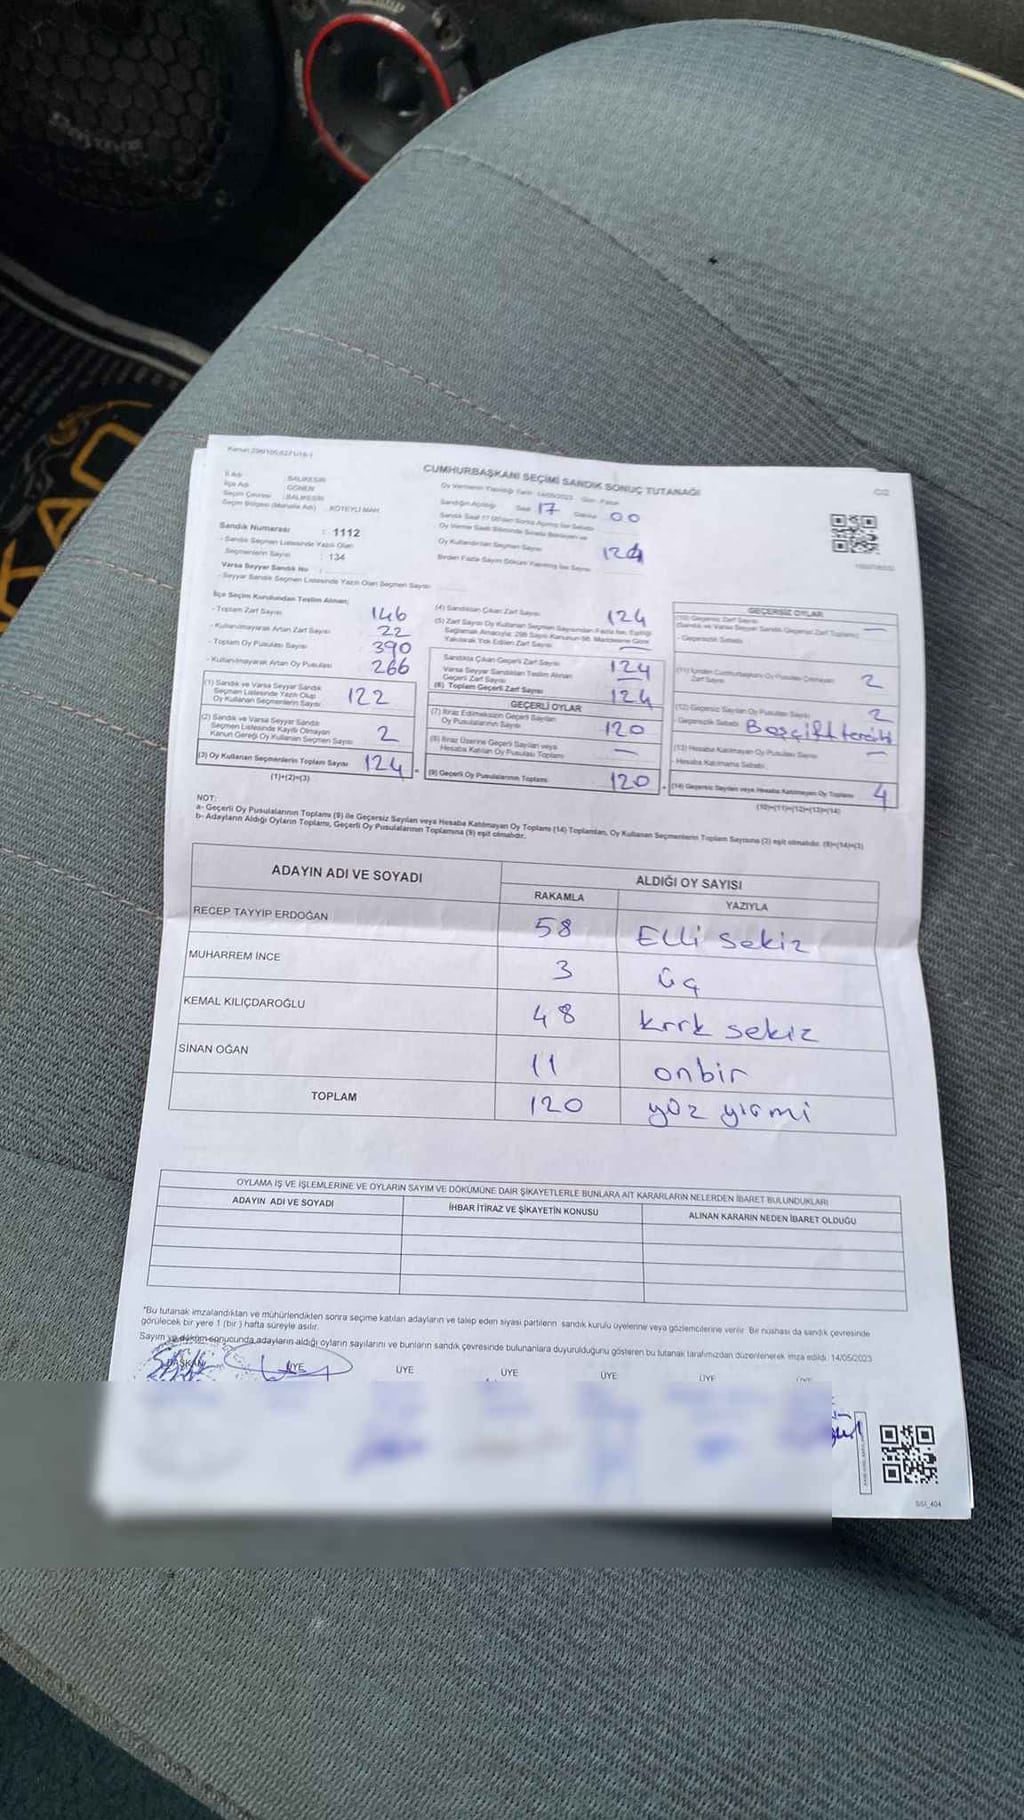 CUMHURBAŞKANI SEÇİMİ SANDIK SONUÇ TUTANAĞI
İli Adı : BALIKESİR
İlçe Adı : GÖNEN
Seçim Çevresi : BALIKESİR
Seçim Bölgesi (Mahalle Adı) : KÖTEYLİ MAH.
Oy Vermenin Yapıldığı Tarih 14/05/2023 Gün : Pazar
Sandığın Açıldığı Saat 17 Dakika 00
Sandık Numarası : 1112
- Sandık Seçmen Listesinde Yazılı Olan
Seçmenlerin Sayısı : 134
Varsa Seyyar Sandık No :
- Seyyar Sandık Seçmen Listesinde Yazılı Olan Seçmen Sayısı
Oy Kullandırılan Seçmen Sayısı 124
Birden Fazla Sayım Döküm Yapılmış İse Sayısı
İlçe Seçim Kurulundan Teslim Alınan;
- Toplam Zarf Sayısı 146
- Kullanılmayarak Artan Zarf Sayısı 22
- Toplam Oy Pusulası Sayısı 390
- Kullanılmayarak Artan Oy Pusulası 266
(1) Sandık ve Varsa Seyyar Sandık
Seçmen Listesinde Yazılı Olup
Oy Kullanan Seçmenlerin Sayısı 122
(2) Sandık ve Varsa Seyyar Sandık
Seçmen Listesinde Kayıtlı Olmayan
Kanun Gereği Oy Kullanan Seçmen Sayısı 2
(3) Oy Kullanan Seçmenlerin Toplam Sayısı 124
(1)+(2)=(3)
(4) Sandıktan Çıkan Zarf Sayısı 124
(5) Zarf Sayısı Oy Kullanan Seçmen Sayısından Fazla İse, Eşitliği
Sağlamak Amacıyla; 298 Sayılı Kanunun 98. Maddesine Göre
Yakılarak Yok Edilen Zarf Sayısı —
Sandıkta Çıkan Geçerli Zarf Sayısı 124
Varsa Seyyar Sandıktan Teslim Alınan
Geçerli Zarf Sayısı —
(6) Toplam Geçerli Zarf Sayısı 124
GEÇERLİ OYLAR
(7) İtiraz Edilmeksizin Geçerli Sayılan
Oy Pusulalarının Sayısı 120
(8) İtiraz Üzerine Geçerli Sayılan veya
Hesaba Katılan Oy Pusulası Toplamı —
(9) Geçerli Oy Pusulalarının Toplamı 120
GEÇERSİZ OYLAR
(10) Geçersiz Zarf Sayısı
(Sandık ve Varsa Seyyar Sandık Geçersiz Zarf Toplamı) —
- Geçersizlik Sebebi
(11) İçinden Cumhurbaşkanı Oy Pusulası Çıkmayan
Zarf Sayısı 2
(12) Geçersiz Sayılan Oy Pusulası Sayısı 2
- Geçersizlik Sebebi Boş çift tercih
(13) Hesaba Katılmayan Oy Pusulası Sayısı —
- Hesaba Katılmama Sebebi
(14) Geçersiz Sayılan veya Hesaba Katılmayan Oy Toplamı 4
(10)+(11)+(12)+(13)=(14)
NOT:
a- Geçerli Oy Pusulalarının Toplamı (9) ile Geçersiz Sayılan veya Hesaba Katılmayan Oy Toplamı (14) Toplamları, Oy Kullanan Seçmenlerin Toplam Sayısına (3) eşit olmalıdır. (9)+(14)=(3)
b- Adayların Aldığı Oyların Toplamı, Geçerli Oy Pusulalarının Toplamına (9) eşit olmalıdır.
ADAYIN ADI VE SOYADI ALDIĞI OY SAYISI
RAKAMLA YAZIYLA
RECEP TAYYİP ERDOĞAN 58 Elli sekiz
MUHARREM İNCE 3 üç
KEMAL KILIÇDAROĞLU 48 kırk sekiz
SİNAN OĞAN 11 onbir
TOPLAM 120 yüz yirmi
OYLAMA İŞ VE İŞLEMLERİNE VE OYLARIN SAYIM VE DÖKÜMÜNE DAİR ŞİKAYETLERLE BUNLARA AİT KARARLARIN NELERDEN İBARET BULUNDUKLARI
ADAYIN ADI VE SOYADI İHBAR İTİRAZ VE ŞİKAYETİN KONUSU ALINAN KARARIN NEDEN İBARET OLDUĞU
*Bu tutanak imzalandıktan ve mühürlendikten sonra seçime katılan adayların ve talep eden siyasi partilerin sandık kurulu üyelerine veya gözlemcilerine verilir. Bir nüshası da sandık çevresinde
görülecek bir yere 1 (bir) hafta süreyle asılır.
Sayım ve döküm sonucunda adayların aldığı oyların sayılarını ve bunların sandık çevresinde bulunanlara duyurulduğunu gösteren bu tutanak tarafımızdan düzenlenerek imza edildi. 14/05/2023
BAŞKAN ÜYE ÜYE ÜYE ÜYE ÜYE ÜYE